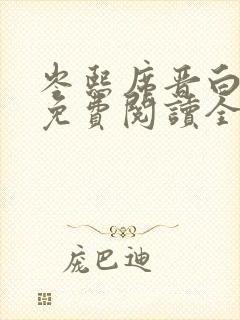 岑熙席晋白
免費閱讀全
庞巴迪